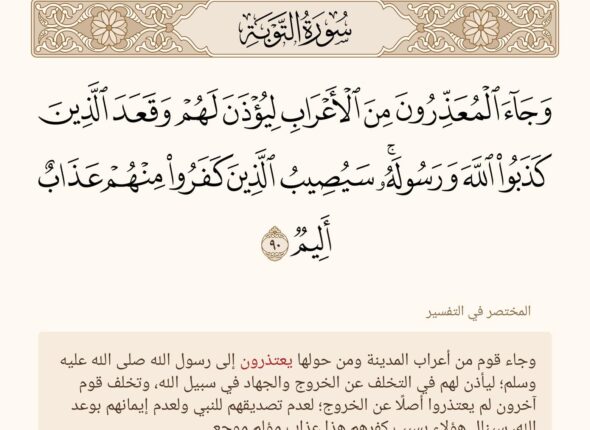 سُورَةُ التَّوْبَةِ
وَجَآءَ ٱلْمُعَذِّرُونَ مِنَ ٱلْأَعْرَابِ لِيُؤْذَنَ لَهُمْ وَقَعَدَ ٱلَّذِينَ
كَذَبُوا۟ ٱللَّهَ وَرَسُولَهُۥۚ سَيُصِيبُ ٱلَّذِينَ كَفَرُوا۟ مِنْهُمْ عَذَابٌ
أَلِيمٌۭ ٩٠
المختصر في التفسير
وجاء قوم من أعراب المدينة ومن حولها يعتذرون إلى رسول الله صلى الله عليه
وسلم؛ ليأذن لهم في التخلف عن الخروج والجهاد في سبيل الله، وتخلف قوم
آخرون لم يعتذروا أصلًا عن الخروج؛ لعدم تصديقهم للنبي ولعدم إيمانهم بوعد
الله، سينال هؤلاء بسبب كفرهم هذا عذاب مؤلم موجع.